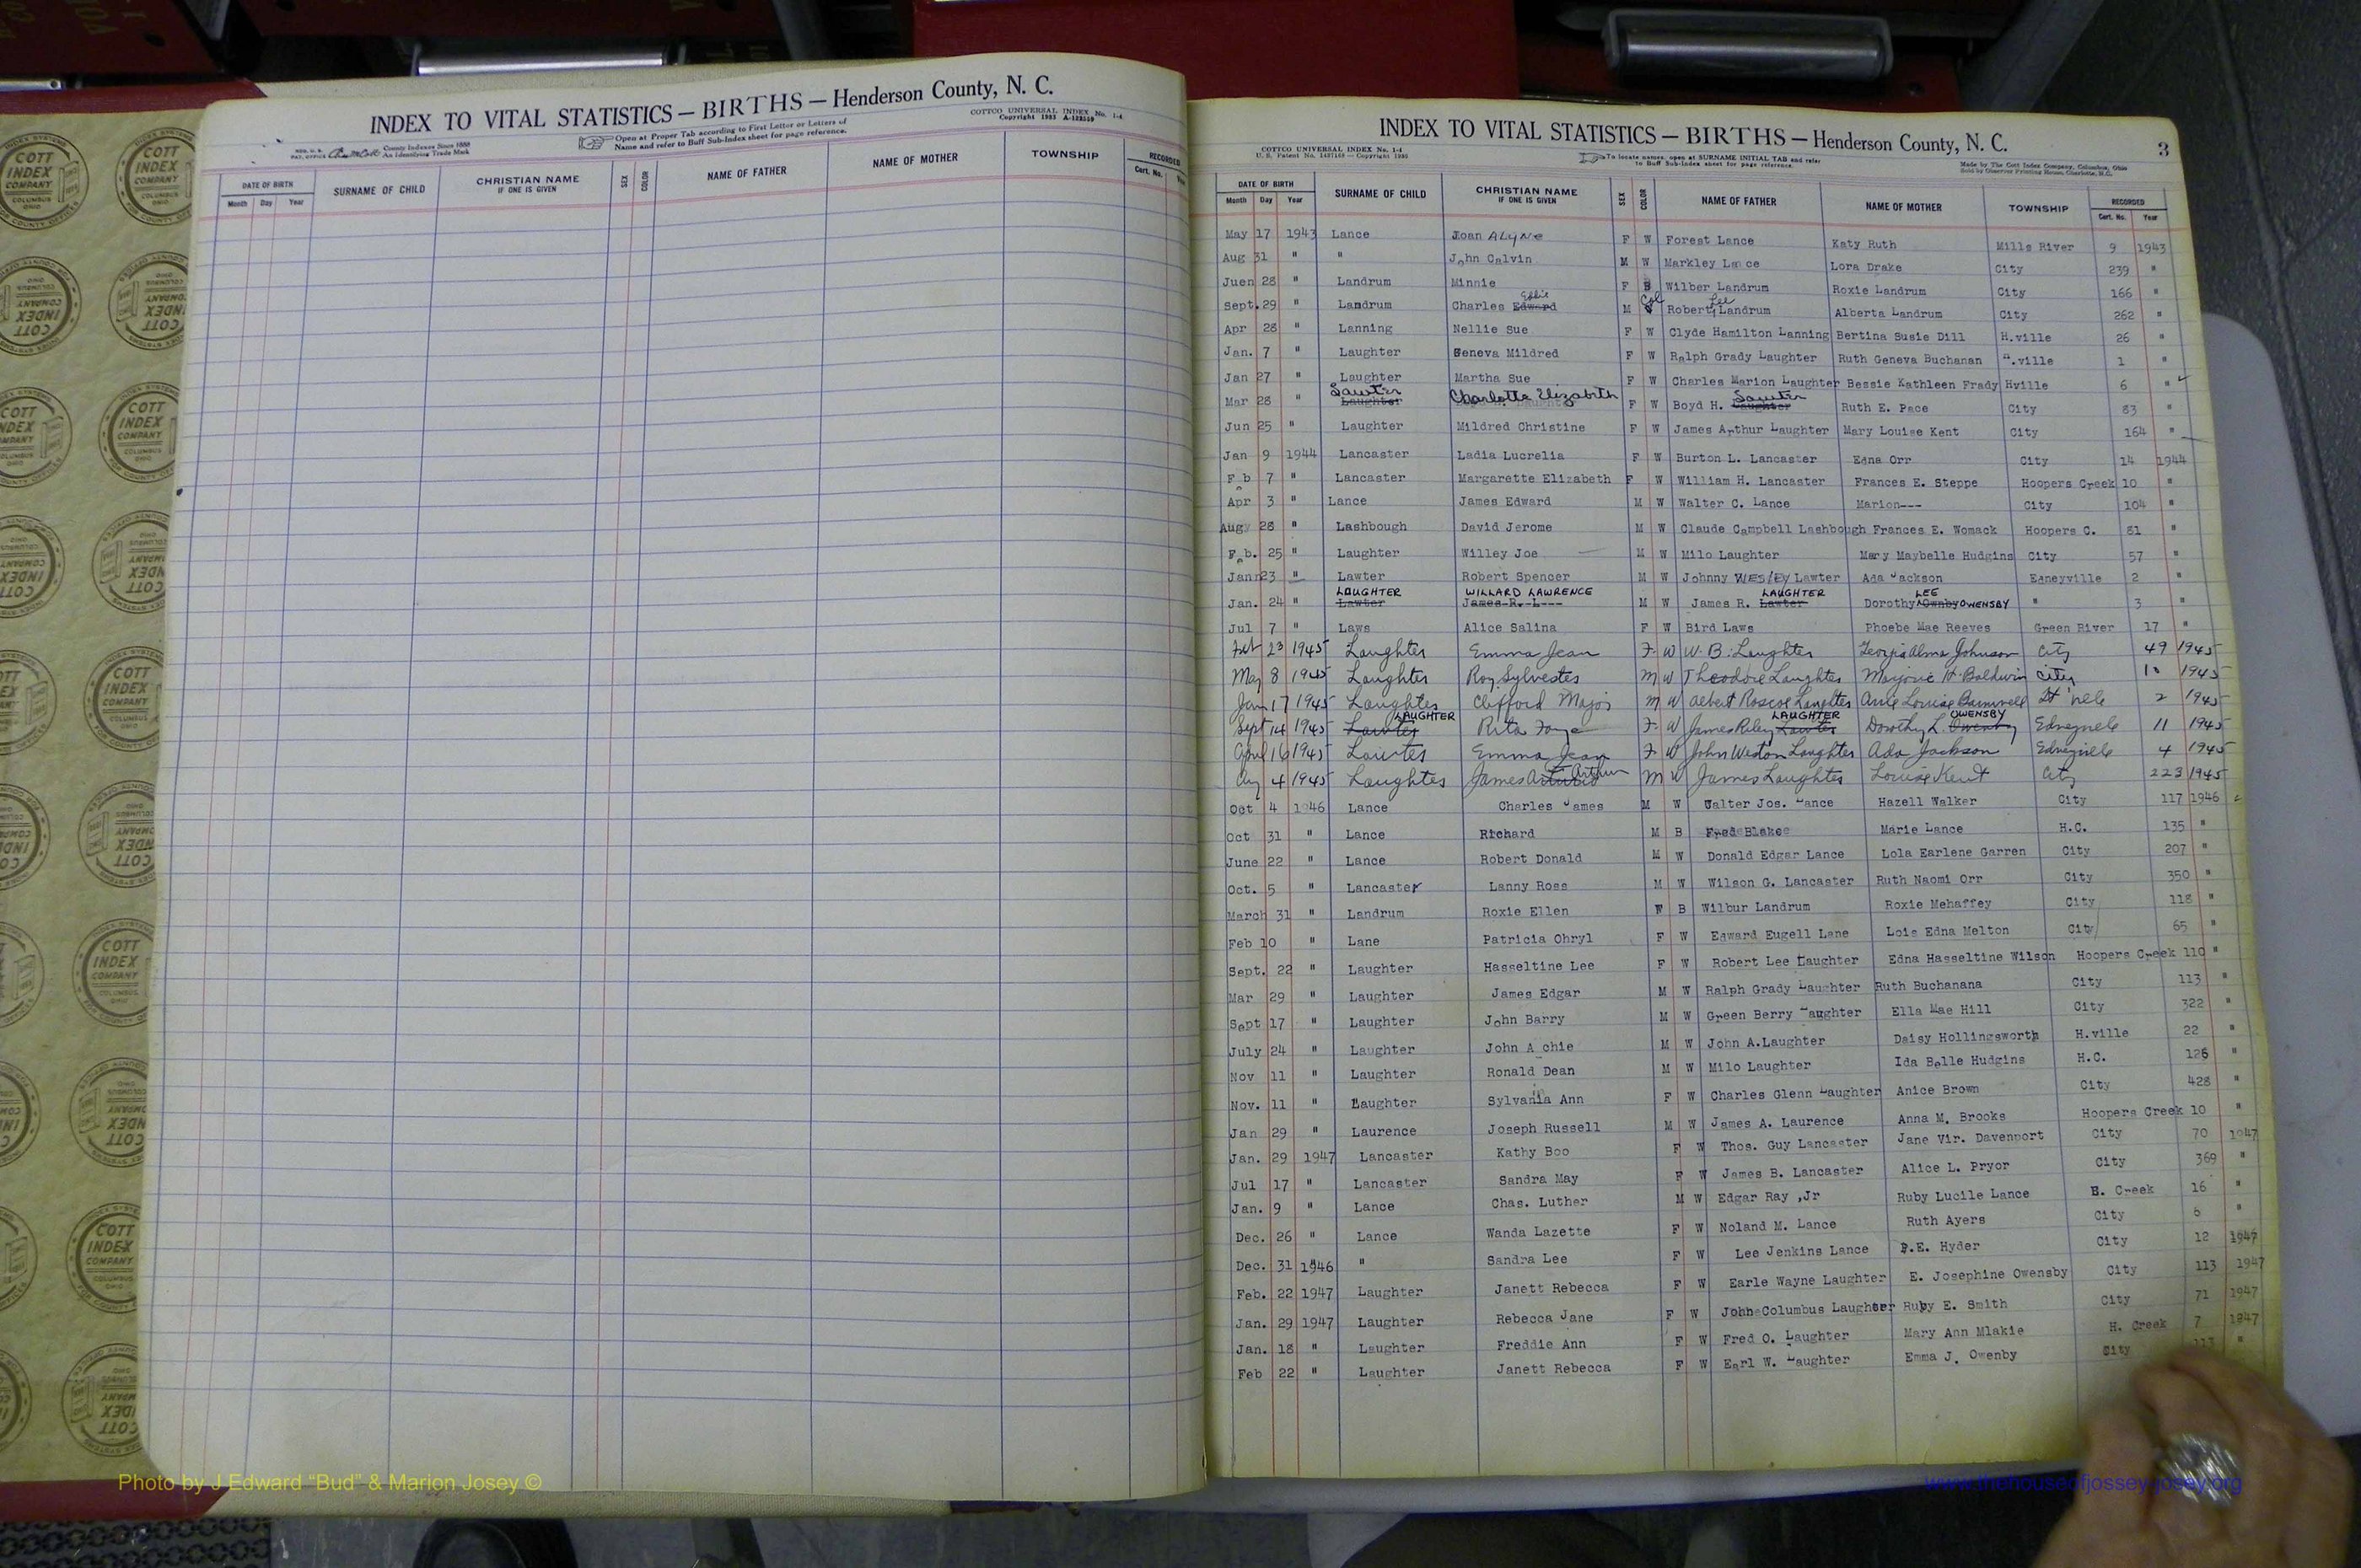 INDEX TO VITAL STATISTICS — BIRTHS — Henderson County, N. C.
COTTCO UNIVERSAL INDEX No. 1-4
Open at Proper Tab according to First Letter or Letters of
Name and refer to Buff Sub-Index sheet for page reference.
County Indexes Since 1888
An Identifying Trade Mark
DATE OF BIRTH SURNAME OF CHILD CHRISTIAN NAME IF ONE IS GIVEN SEX COLOR NAME OF FATHER NAME OF MOTHER TOWNSHIP RECORDED
Month Day Year Cert. No.
INDEX TO VITAL STATISTICS — BIRTHS — Henderson County, N. C. 3
COTTCO UNIVERSAL INDEX No. 1-4
To locate names, open at SURNAME INITIAL TAB and refer
to Buff Sub-Index sheet for page reference.
Made by The Cott Index Company, Columbus, Ohio
Sold by Observer Printing House, Charlotte, N.C.
DATE OF BIRTH SURNAME OF CHILD CHRISTIAN NAME IF ONE IS GIVEN SEX COLOR NAME OF FATHER NAME OF MOTHER TOWNSHIP RECORDED
Month Day Year Cert. No. Year
May 17 1943 Lance Joan ALYNE F W Forest Lance Katy Ruth Mills River 9 1943
Aug 31 " " John Calvin M W Markley Lance Lora Drake City 239 "
Juen 28 " Landrum Minnie F B Wilber Landrum Roxie Landrum City 166 "
Sept. 29 " Landrum Charles Edward Eddie M Col Robert Lee Landrum Alberta Landrum City 262 "
Apr 28 " Lanning Nellie Sue F W Clyde Hamilton Lanning Bertina Susie Dill H.ville 26 "
Jan. 7 " Laughter Geneva Mildred F W Ralph Grady Laughter Ruth Geneva Buchanan H.ville 1 "
Jan 27 " Laughter Martha Sue F W Charles Marion Laughter Bessie Kathleen Frady Hville 6 "
Mar 28 " Laughter Lawter Charlotte Elizabeth F W Boyd H. Laughter Lawter Ruth E. Pace City 83 "
Jun 25 " Laughter Mildred Christine F W James Arthur Laughter Mary Louise Kent City 164 "
Jan 9 1944 Lancaster Ladia Lucrelia F W Burton L. Lancaster Edna Orr City 14 1944
Feb 7 " Lancaster Margarette Elizabeth F W William H. Lancaster Frances E. Steppe Hoopers Creek 10 "
Apr 3 " Lance James Edward M W Walter C. Lance Marion--- City 104 "
Augy 28 " Lashbough David Jerome M W Claude Campbell Lashbough Frances E. Womack Hoopers C. 81 "
Feb. 25 " Laughter Willey Joe M W Milo Laughter Mary Maybelle Hudgins City 57 "
Jann23 " Lawter Robert Spencer M W Johnny WESLEY Lawter Ada Jackson Edneyville 2 "
Jan. 24 " Lawter LAUGHTER James R. L--- WILLARD LAWRENCE M W James R. Lawter LAUGHTER Dorothy LEE Ownby OWENSBY " 3 "
Jul 7 " Laws Alice Salina F W Bird Laws Phoebe Mae Reeves Green River 17 "
Feb 23 1945 Laughter Emma Jean F W W. B. Laughter Georgia Alma Johnson City 49 1945
May 8 1945 Laughter Roy Sylvester M W Theodore Laughter Marjorie H. Baldwin City 1945
Jan 17 1945 Laughter Clifford Major M W Albert Roscoe Laughter Louise Barnwell 2 1945
Sept 14 1945 Lawter LAUGHTER Rita Faye F W James Riley Lawter LAUGHTER Dorothy L. OWENSBY 11 1945
April 16 1945 Lawter Emma Jean F W John Weston Laughter Ada Jackson 4 1945
Aug 4 1945 Laughter James Arthur M W James Laughter Louise Kent City 223 1945
Oct 4 1946 Lance Charles James M W Walter Jos. Lance Hazell Walker City 117 1946
Oct 31 " Lance Richard M B Fred Blake Marie Lance H.C. 135 "
June 22 " Lance Robert Donald M W Donald Edgar Lance Lola Earlene Garren City 207 "
Oct. 5 " Lancaster Lanny Ross M W Wilson G. Lancaster Ruth Naomi Orr City 350 "
March 31 " Landrum Roxie Ellen F B Wilbur Landrum Roxie Mehaffey City 118 "
Feb 10 " Lane Patricia Ohryl F W Edward Eugell Lane Lois Edna Melton City 65 "
Sept. 22 " Laughter Hasseltine Lee F W Robert Lee Laughter Edna Hasseltine Wilson Hoopers Creek 110 "
Mar 29 " Laughter James Edgar M W Ralph Grady Laughter Ruth Buchanana City 113 "
Sept 17 " Laughter John Barry M W Green Berry Laughter Ella Mae Hill City 322 "
July 24 " Laughter John A chie M W John A.Laughter Daisy Hollingsworth H.ville 22 "
Nov 11 " Laughter Ronald Dean M W Milo Laughter Ida Belle Hudgins H.C. 126 "
Nov. 11 " Laughter Sylvania Ann F W Charles Glenn Laughter Anice Brown City 428 "
Jan 29 " Laurence Joseph Russell M W James A. Laurence Anna M. Brooks Hoopers Creek 10 "
Jan. 29 1947 Lancaster Kathy Boo F W Thos. Guy Lancaster Jane Vir. Davenport City 70 1947
Jul 17 " Lancaster Sandra May F W James B. Lancaster Alice L. Pryor City 369 "
Jan. 9 " Lance Chas. Luther M W Edgar Ray ,Jr Ruby Lucile Lance H. Creek 16 "
Dec. 26 " Lance Wanda Lazette F W Noland M. Lance Ruth Ayers City 6 "
Dec. 31 1946 " Sandra Lee F W Lee Jenkins Lance P.E. Hyder City 12 1947
Feb. 22 1947 Laughter Janett Rebecca F W Earle Wayne Laughter E. Josephine Owensby City 113 1947
Jan. 29 1947 Laughter Rebecca Jane F W John Columbus Laughter Ruby E. Smith City 71 1947
Jan. 18 " Laughter Freddie Ann F W Fred O. Laughter Mary Ann Mlakie H. Creek 7 1947
Feb 22 " Laughter Janett Rebecca F W Earl W. Laughter Emma J. Owenby City 113 "
Photo by J Edward “Bud” & Marion Josey ©
www.thehouseofjossey-josey.org
COTT
INDEX
COMPANY
COLUMBUS
OHIO